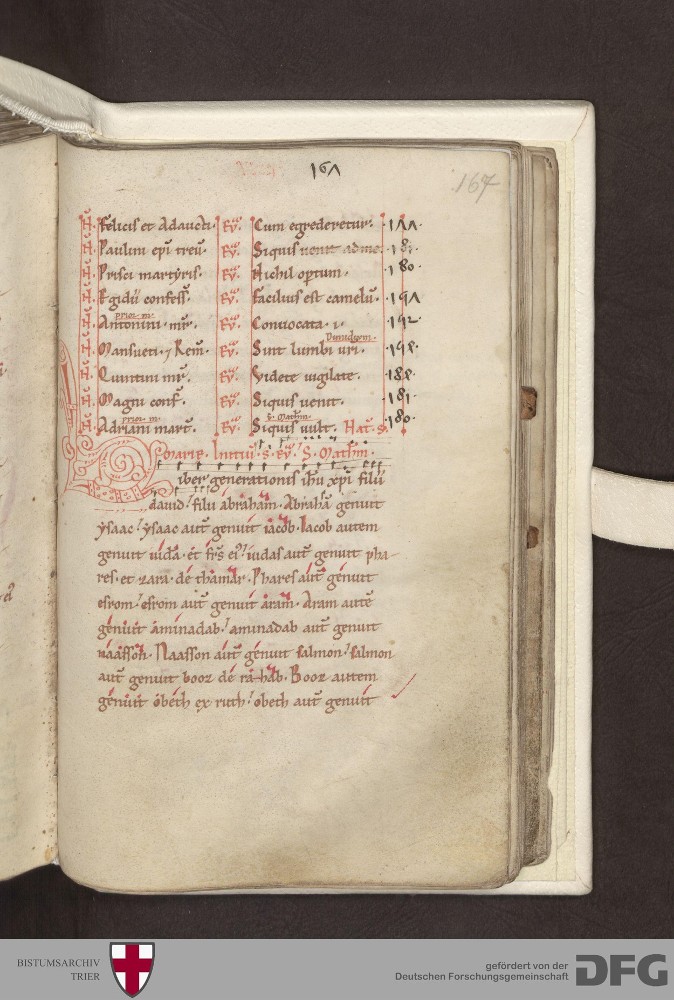 16Λ
167
N̄. Felicis et Adaucti. Ev̄. Cum egrederetur. 1ΛΛ.
N̄. Paulini ep̄i treu̅. Ev̄. Siquis uenit ad me.
N̄. Prisci martyris. Ev̄. Nichil optum. 180.
N̄. Egidii confess̄. Ev̄. Facilius est camelū. 19Λ
prior. m̄.
N̄. Antonini. mr̄. Ev̄. Conuocatа. i. 192.
N̄. Mansueti. ⁊ Rem̄. Ev̄. Sint lumbi uri.
N̄. Quintini mr̄. Ev̄. Videte uigilate.
N̄. Magni conf̄. Ev̄. Siquis uenit. 181.
prior. m̄. S. Mathm̄.
N̄. Adriani mart̄. Ev̄. Siquis uult. Nat̄. S. 180.
Marię. Initiū. S. Ev̄. S. Mathm̄.
Liber generationis ih̄u xp̄i filii
dauid. filii abraham. Abrahā genuit
ysaac. ysaac aut̄ genuit iacob. Iacob autem
genuit iudā. et fr̄s ei'. iudas aut̄ genuit pha-
res. et zara. de thamar. Phares aut̄ genuit
esrom. esrom aut̄ genuit aram. Aram autē
genuit aminadab. aminadab aut̄ genuit
naasson. Naasson aut̄ genuit salmon. salmon
aut̄ genuit booz de rahab. Booz autem
genuit obeth ex ruth. obeth aut̄ genuit
BISTUMSARCHIV
TRIER
gefördert von der
Deutschen Forschungsgemeinschaft
DFG